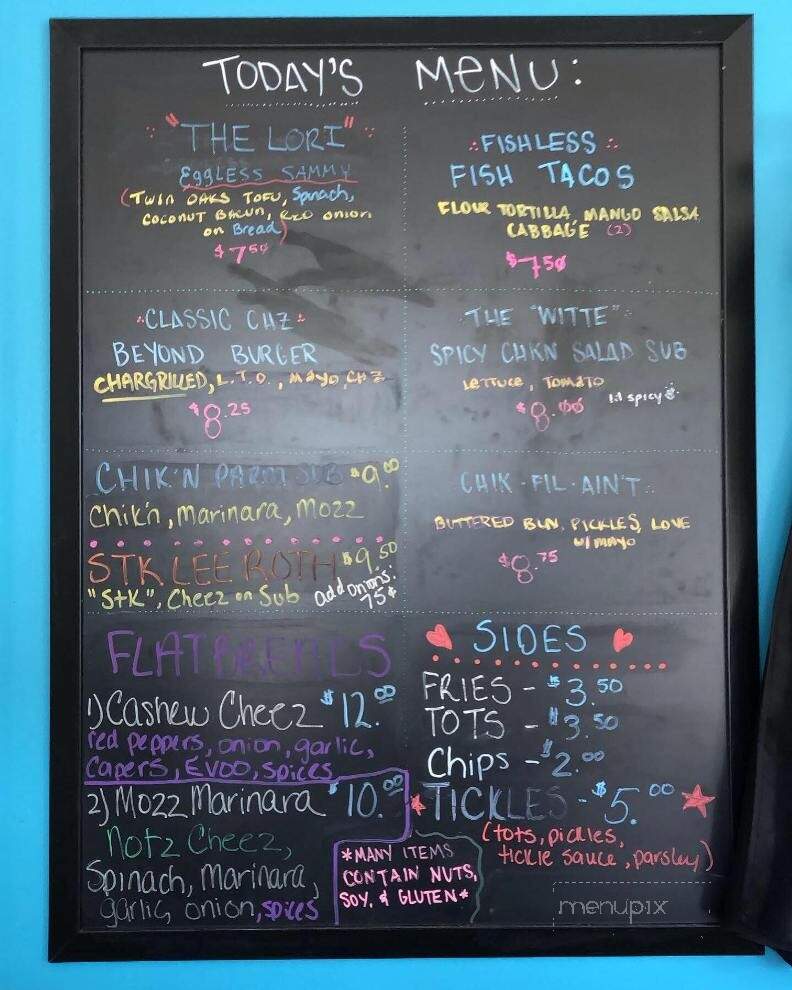 TODAY'S MENU:
"THE LORI"
EGGLESS SAMMY
(TWIN OAKS TOFU, Spinach,
COCONUT BACUN, RED ONION
on Bread)
$7.50
FISHLESS
FISH TACOS
FLOUR TORTILLA, MANGO SALSA
CABBAGE (2)
$7.50
CLASSIC CHZ
BEYOND BURGER
CHARGRILLED, L.T.O., MAYO, CHZ
$8.25
THE "WITTE"
SPICY CHKN SALAD SUB
LETTUCE, TOMATO
lil spicy
$8.00
CHIK'N PARM SUB $9.00
Chik'n, Marinara, Mozz
STK LEE ROTH $9.50
"Stk", Cheez on Sub
add onions: 75¢
CHIK-FIL-AIN'T
BUTTERED BUN, PICKLES, LOVE
W/MAYO
$8.75
FLATBREADS
1) Cashew Cheez $12.00
red peppers, onion, garlic,
Capers, EVOO, spices
2) Mozz Marinara $10.00
Notz Cheez,
Spinach, Marinara,
garlic, onion, spices
*MANY ITEMS
CONTAIN NUTS,
SOY, & GLUTEN*
SIDES
FRIES - $3.50
TOTS - $3.50
Chips - $2.00
TICKLES - $5.00
(tots, pickles,
tickle sauce, parsley)
menupix